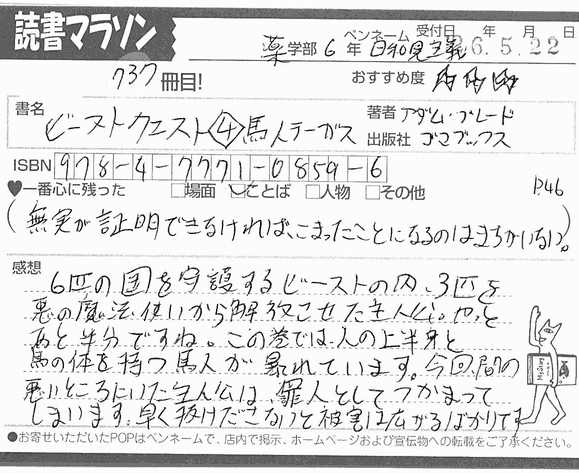 読書マラソン
ペンネーム 受付日 年 月 日
薬学部 6年 日和見主義 6.5.22
737冊目!
おすすめ度 ☆☆☆
書名
ビーストクエスト④馬人テーガス
著者 アダム・ブレード
出版社 ゴマブックス
ISBN 978-4-7771-0859-6
♥一番心に残った □場面 ☑ことば □人物 □その他 P.46
(無実が証明できなければ、こまったことになるのはまちがいない。)
感想
6匹の国を守護するビーストの内、3匹を
悪の魔法使いから解放させた主人公。やっと
あと半分ですね。この巻では、人の上半身と
馬の体を持つ馬人が暴れています。今回、間の
悪いところにいた主人公は、罪人としてつかまって
しまいます。早く抜けださないと被害は広がるばかりです
●お寄せいただいたPOPはペンネームで、店内で掲示、ホームページおよび宣伝物への転載をご了承ください。